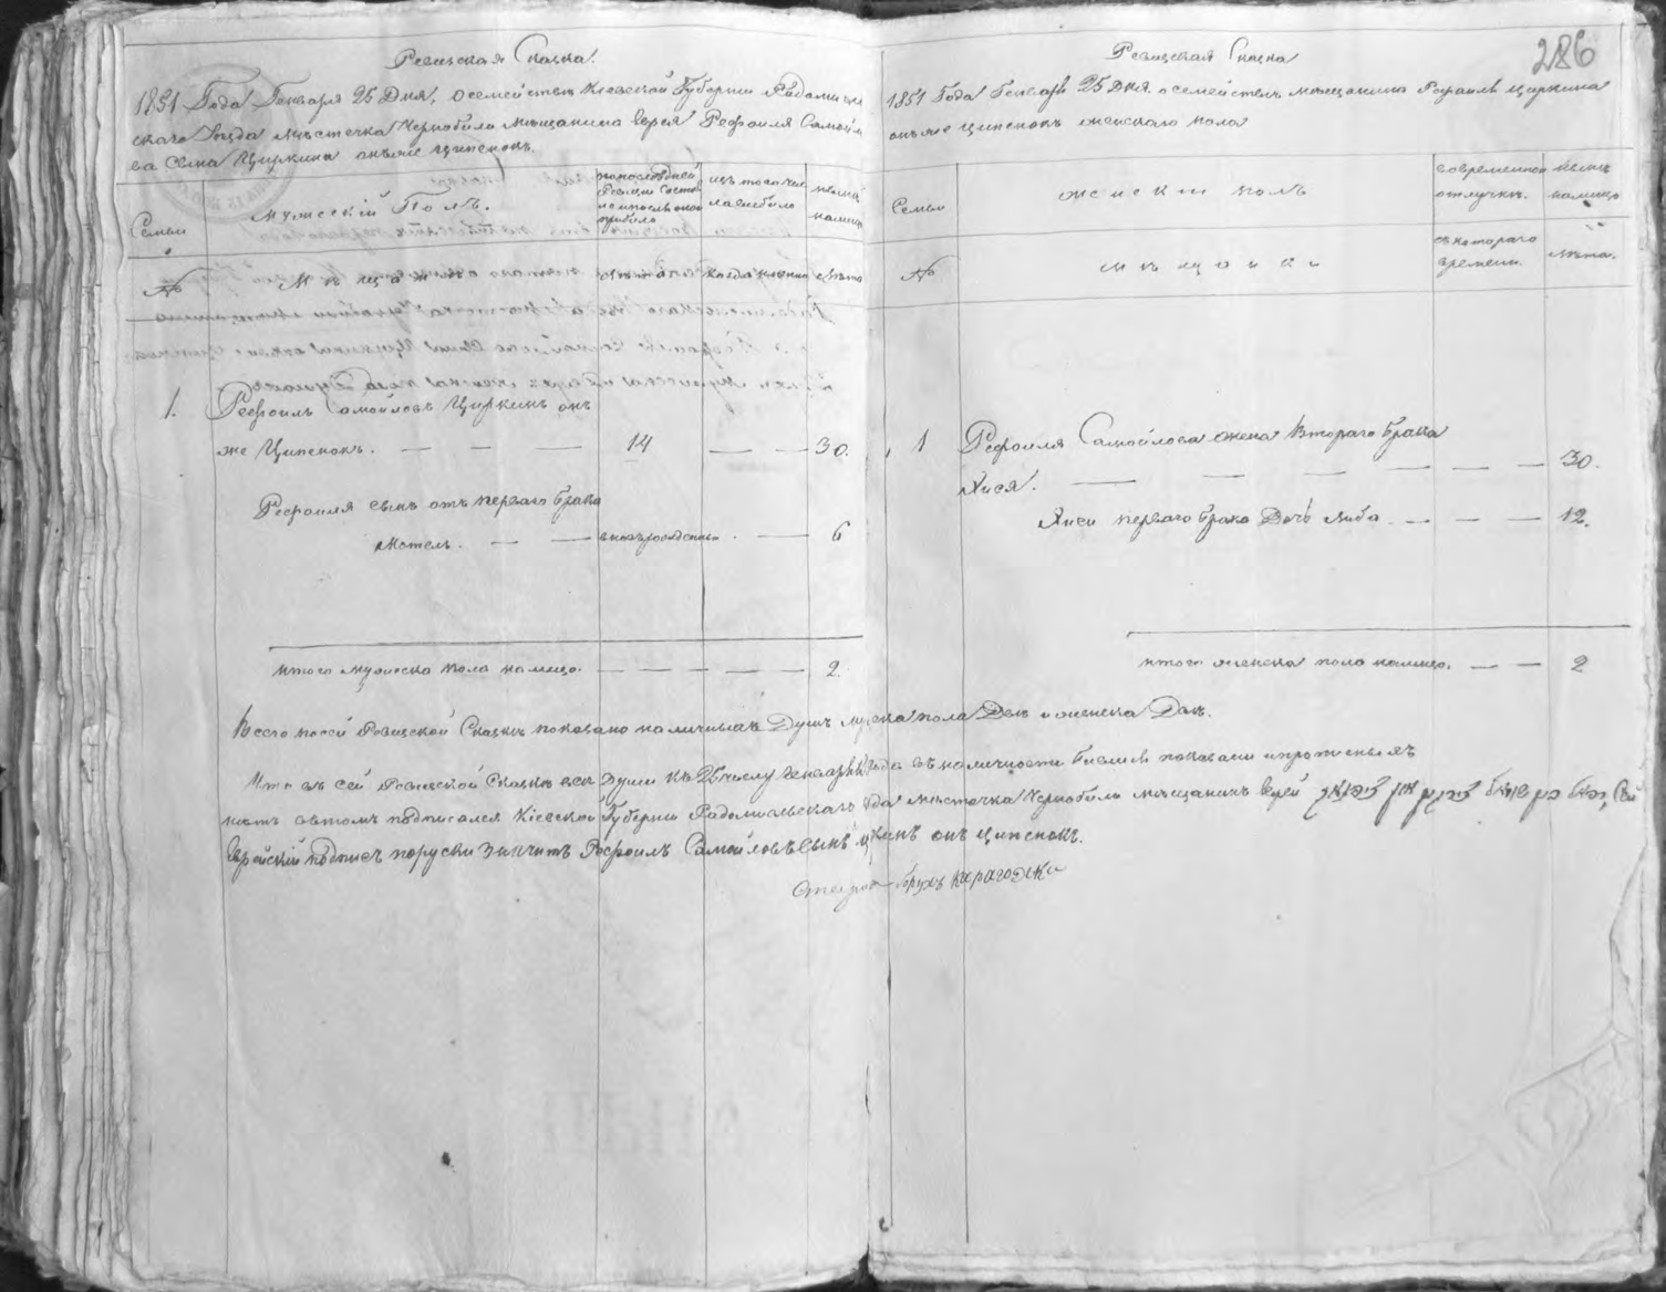 Ревизская Сказка.
1851 Года Генваря 25 Дня, о семействе Киевской Губернии Радомысль
скаго Уезда Местечка Чернобиля мещанина Еврея Рефоиля Самойло
ва Сина Циркина онъ же Ципенокъ.
Семьи
Мужескій Полъ.
по последней Ревизіи состо
прибыло
изъ того чис
ла выбыло
ныне
налицо
№
Мещане
лета
когда именно
Лета
1.
Рефоилъ Самойловъ Циркинъ онъ
же Ципенокъ. — — — 14 — — 30.
Рефоиля сынъ отъ перваго брака
Мотель. — — новорожденный. — 6
итого мужеска пола налицо. — — — — — 2.
286
Ревизская Сказка
1851 Года Генваря 25 Дня. о семействе мещанина Рефоиля Циркина
онъ же Ципенокъ женскаго пола
Семьи
женскій полъ
во временной
отлучке.
ныне
налицо
№
мещанки
съ котораго
времени.
Лета.
1 Рефоиля Самойлова жена втораго брака
Хися. — — — — — — 30.
Хиси перваго брака Дочь Либа. — — — 12.
итого женска пола налицо. — — 2
Всего по сей Ревизской Сказке показано наличныхъ Душъ мужеска пола Две и женска Две.
Что въ сей Ревизской Сказке все души къ 25 числу Генваря Года въ наличности бывшие показани и прописныхъ
нетъ въ томъ подписался Кіевской Губерніи Радомысльскаго уезда местечка Чернобиля мещанинъ Еврей רפאל בין שמואל צירקין און ציפינאק, Сей
Еврейскій подписъ поруски значитъ Рефоилъ Самойловъ Сынъ Циркинъ онъ Ципенокъ.
Староста Брухъ Карагодски